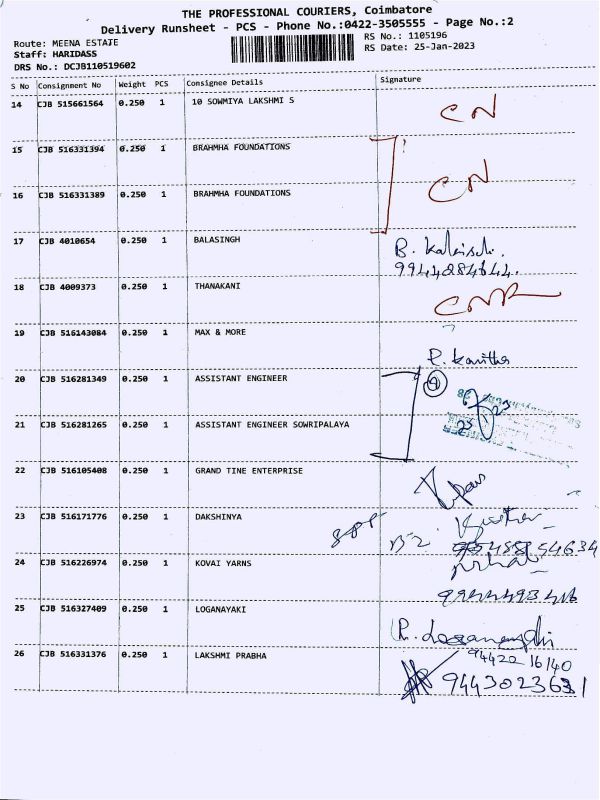 THE PROFESSIONAL COURIERS, Coimbatore
Delivery Runsheet - PCS - Phone No.:0422-3505555 - Page No.:2
Route: MEENA ESTATE
RS No.: 1105196
Staff: HARIDASS
RS Date: 25-Jan-2023
DRS No.: DCJB110519602
S No Consignment No Weight PCS Consignee Details Signature
14 CJB 515661564 0.250 1 10 SOWMIYA LAKSHMI S CN
15 CJB 516331394 0.250 1 BRAHMHA FOUNDATIONS
16 CJB 516331389 0.250 1 BRAHMHA FOUNDATIONS CN
17 CJB 4010654 0.250 1 BALASINGH B.
18 CJB 4009373 0.250 1 THANAKANI
19 CJB 516143084 0.250 1 MAX & MORE P. Kavitha
20 CJB 516281349 0.250 1 ASSISTANT ENGINEER
21 CJB 516281265 0.250 1 ASSISTANT ENGINEER SOWRIPALAYA
22 CJB 516105408 0.250 1 GRAND TINE ENTERPRISE
23 CJB 516171776 0.250 1 DAKSHINYA
24 CJB 516226974 0.250 1 KOVAI YARNS
25 CJB 516327409 0.250 1 LOGANAYAKI R.
94422 16140
26 CJB 516331376 0.250 1 LAKSHMI PRABHA 9443023631